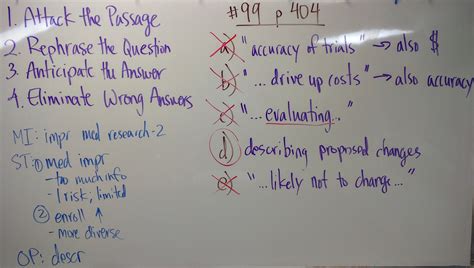 1. Attack the Passage
2. Rephrase the Question
3. Anticipate the Answer
4. Eliminate Wrong Answers
MI: impr med research - 2
ST: ① med impr
- too much info
- 1 risk; limited
② enroll ↑
- more diverse
OP: descr
#99 p 404
a) "accuracy of trials" → also $
b) "... drive up costs" → also accuracy
c) "... evaluating..."
d) describing proposed changes
e) "... likely not to change..."